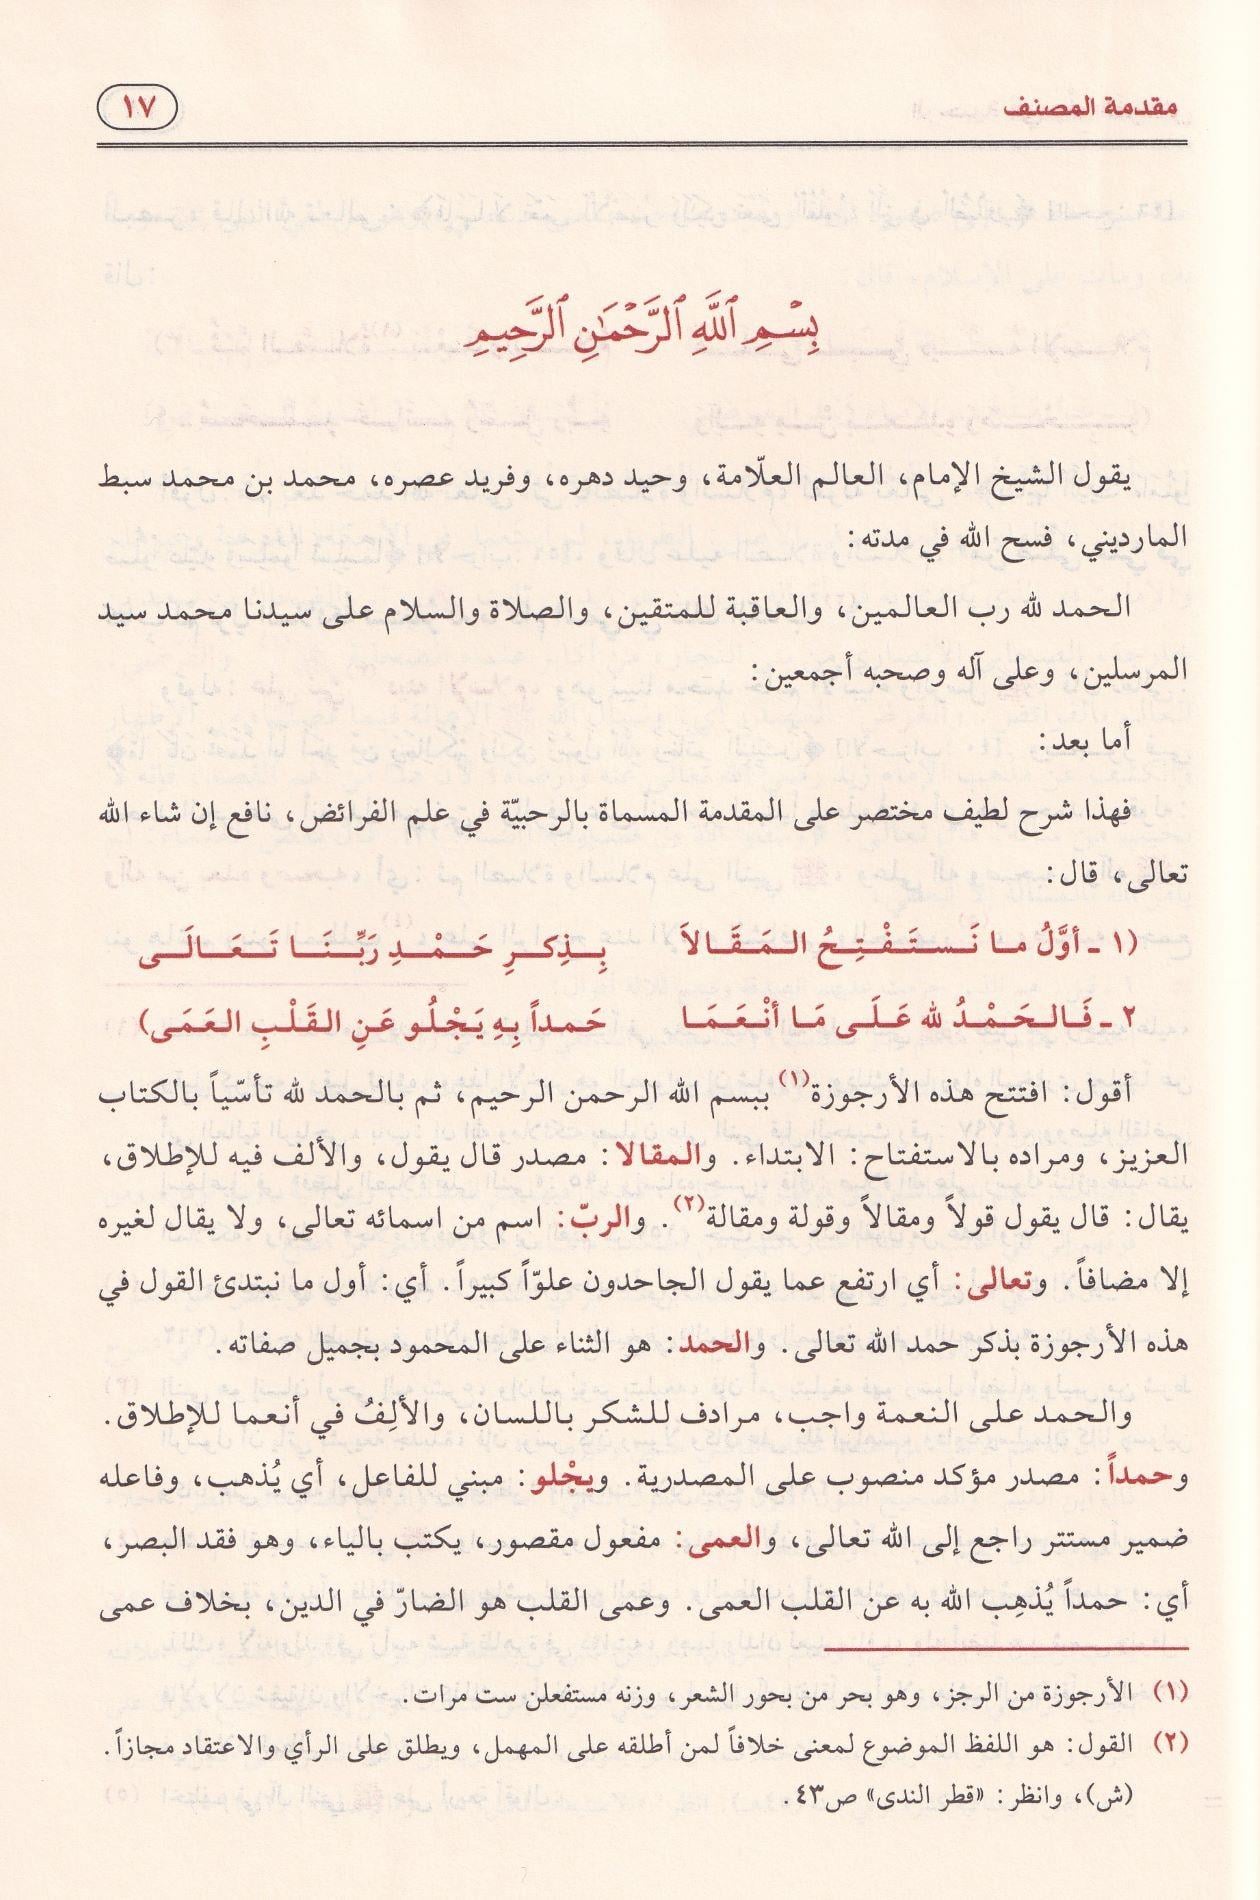 مقدمة المصنف
١٧
بِسْمِ ٱللَّهِ ٱلرَّحْمَٰنِ ٱلرَّحِيمِ
يقول الشيخ الإمام، العالم العلّامة، وحيد دهره، وفريد عصره، محمد بن محمد سبط
المارديني، فسح الله في مدته:
الحمد لله رب العالمين، والعاقبة للمتقين، والصلاة والسلام على سيدنا محمد سيد
المرسلين، وعلى آله وصحبه أجمعين:
أما بعد:
فهذا شرح لطيف مختصر على المقدمة المسماة بالرحبيّة في علم الفرائض، نافع إن شاء الله
تعالى، قال:
(١ ـ أوَّلُ مـا نَـسـتَـفْـتِـحُ الـمَـقَـالاَ بِـذِكـرِ حَـمْـدِ رَبِّـنَـا تَـعَـالَـى
٢ ـ فَـالـحَـمْـدُ لله عَـلَـى مَـا أنْـعَـمَـا حَـمداً بِـهِ يَـجْـلُـو عَـنِ القَـلْـبِ العَـمَـى)
أقول: افتتح هذه الأرجوزة(١) ببسم الله الرحمن الرحيم، ثم بالحمد لله تأسّياً بالكتاب
العزيز، ومراده بالاستفتاح: الابتداء. والمقالا: مصدر قال يقول، والألف فيه للإطلاق،
يقال: قال يقول قولاً ومقالاً وقولة ومقالة(٢). والربّ: اسم من اسمائه تعالى، ولا يقال لغيره
إلا مضافاً. وتعالى: أي ارتفع عما يقول الجاحدون علوّاً كبيراً. أي: أول ما نبتدئ القول في
هذه الأرجوزة بذكر حمد الله تعالى. والحمد: هو الثناء على المحمود بجميل صفاته.
والحمد على النعمة واجب، مرادف للشكر باللسان، والألِفُ في أنعما للإطلاق.
وحمداً: مصدر مؤكد منصوب على المصدرية. ويجْلو: مبني للفاعل، أي يُذهب، وفاعله
ضمير مستتر راجع إلى الله تعالى، والعمى: مفعول مقصور، يكتب بالياء، وهو فقد البصر،
أي: حمداً يُذهِب الله به عن القلب العمى. وعمى القلب هو الضارّ في الدين، بخلاف عمى
(١) الأرجوزة من الرجز، وهو بحر من بحور الشعر، وزنه مستفعلن ست مرات.
(٢) القول: هو اللفظ الموضوع لمعنى خلافاً لمن أطلقه على المهمل، ويطلق على الرأي والاعتقاد مجازاً.
(ش)، وانظر: «قطر الندى» ص٤٣.